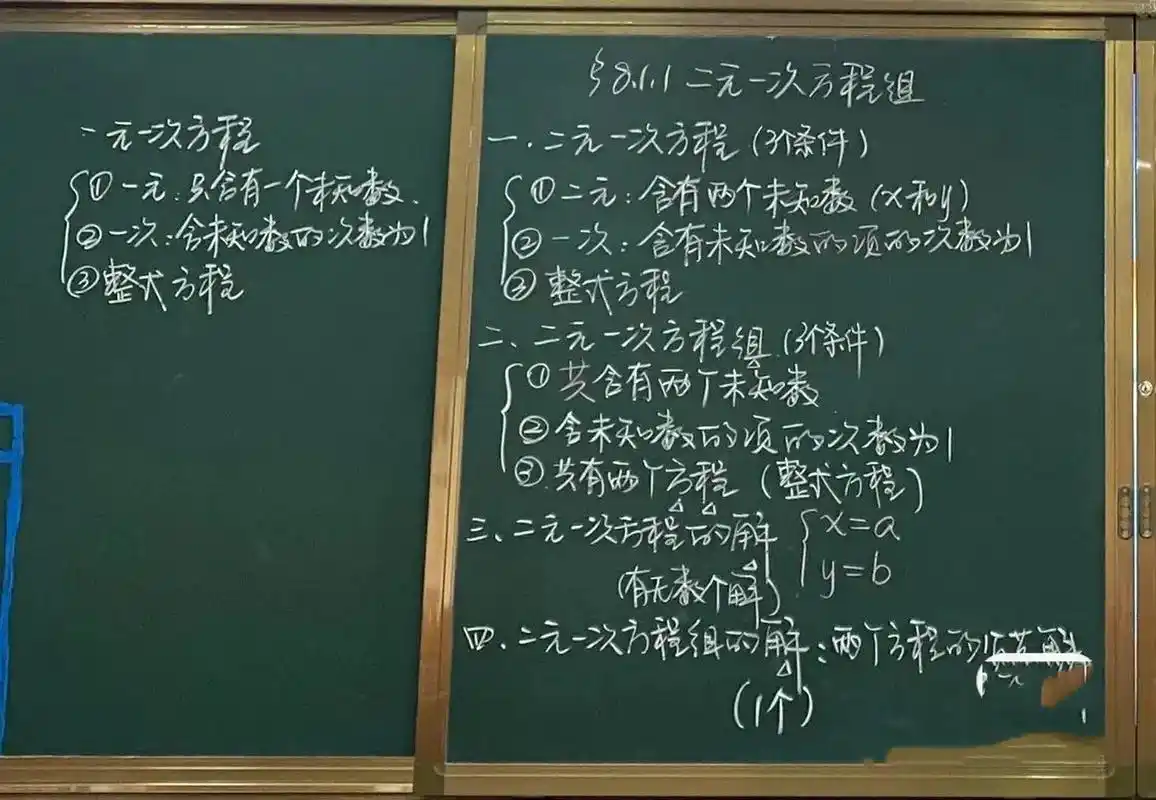 一元一次方程
①一元:只含有一个未知数.
②一次:含未知数的次数为1
③整式方程
§8.1.1 二元一次方程组
一.二元一次方程(3个条件)
①二元:含有两个未知数(x和y)
②一次:含有未知数的项的次数为1
③整式方程
二、二元一次方程组(3个条件)
①共含有两个未知数
②含未知数的项的次数为1
③共有两个方程(整式方程)
三、二元一次方程的解 { x=a
y=b
(有无数个解)
四、二元一次方程组的解:两个方程的
(1个)